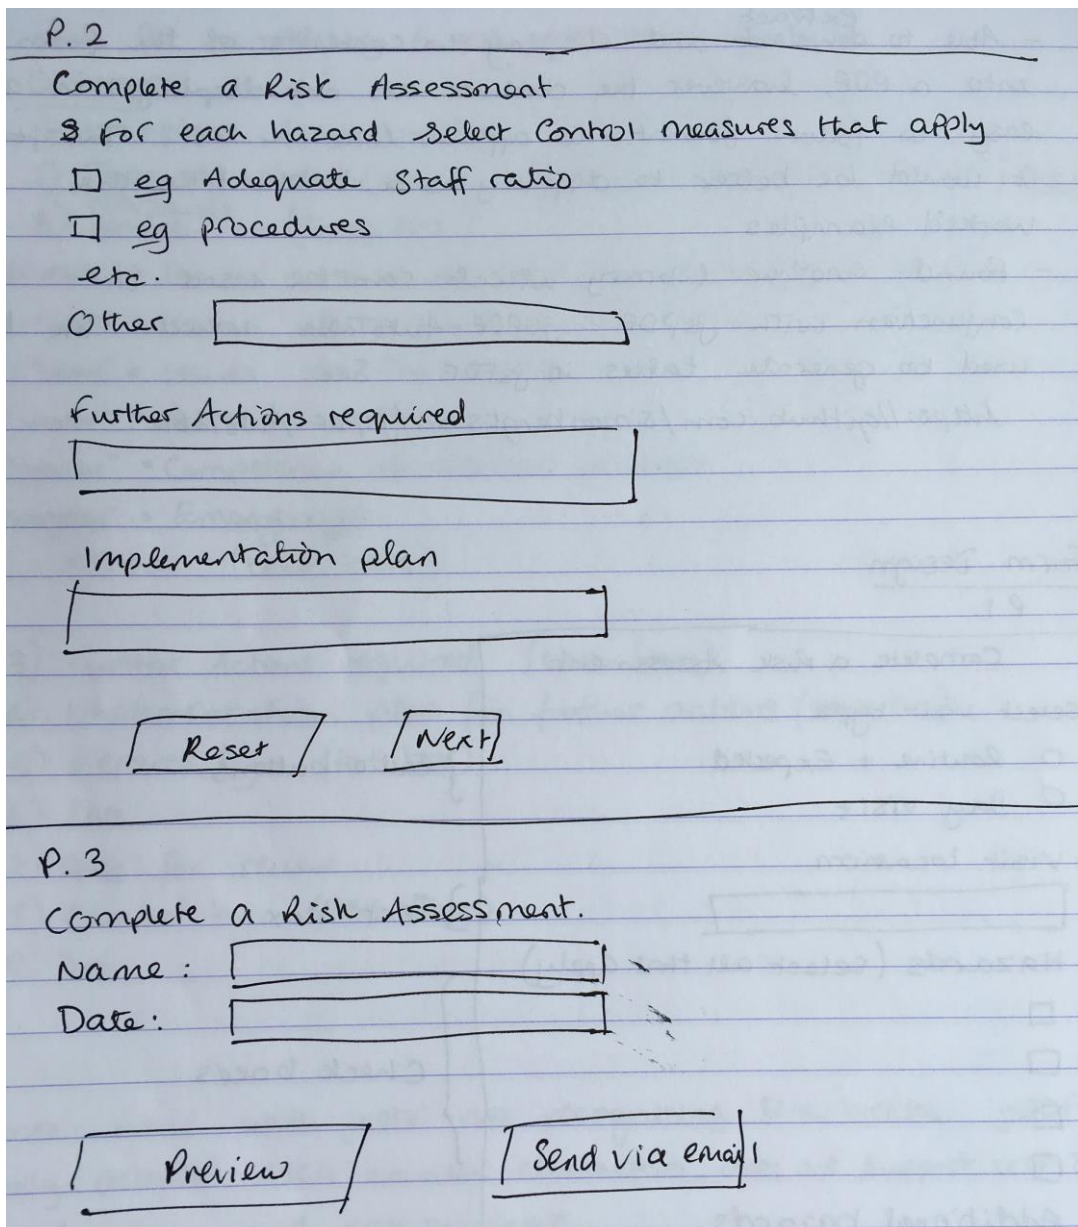 P. 2
Complete a Risk Assessment
For each hazard select Control measures that apply
eg Adequate Staff ratio
eg procedures
etc.
Other
Further Actions required
Implementation plan
Reset
Next
P. 3
Complete a Risk Assessment.
Name:
Date:
Preview
Send via email